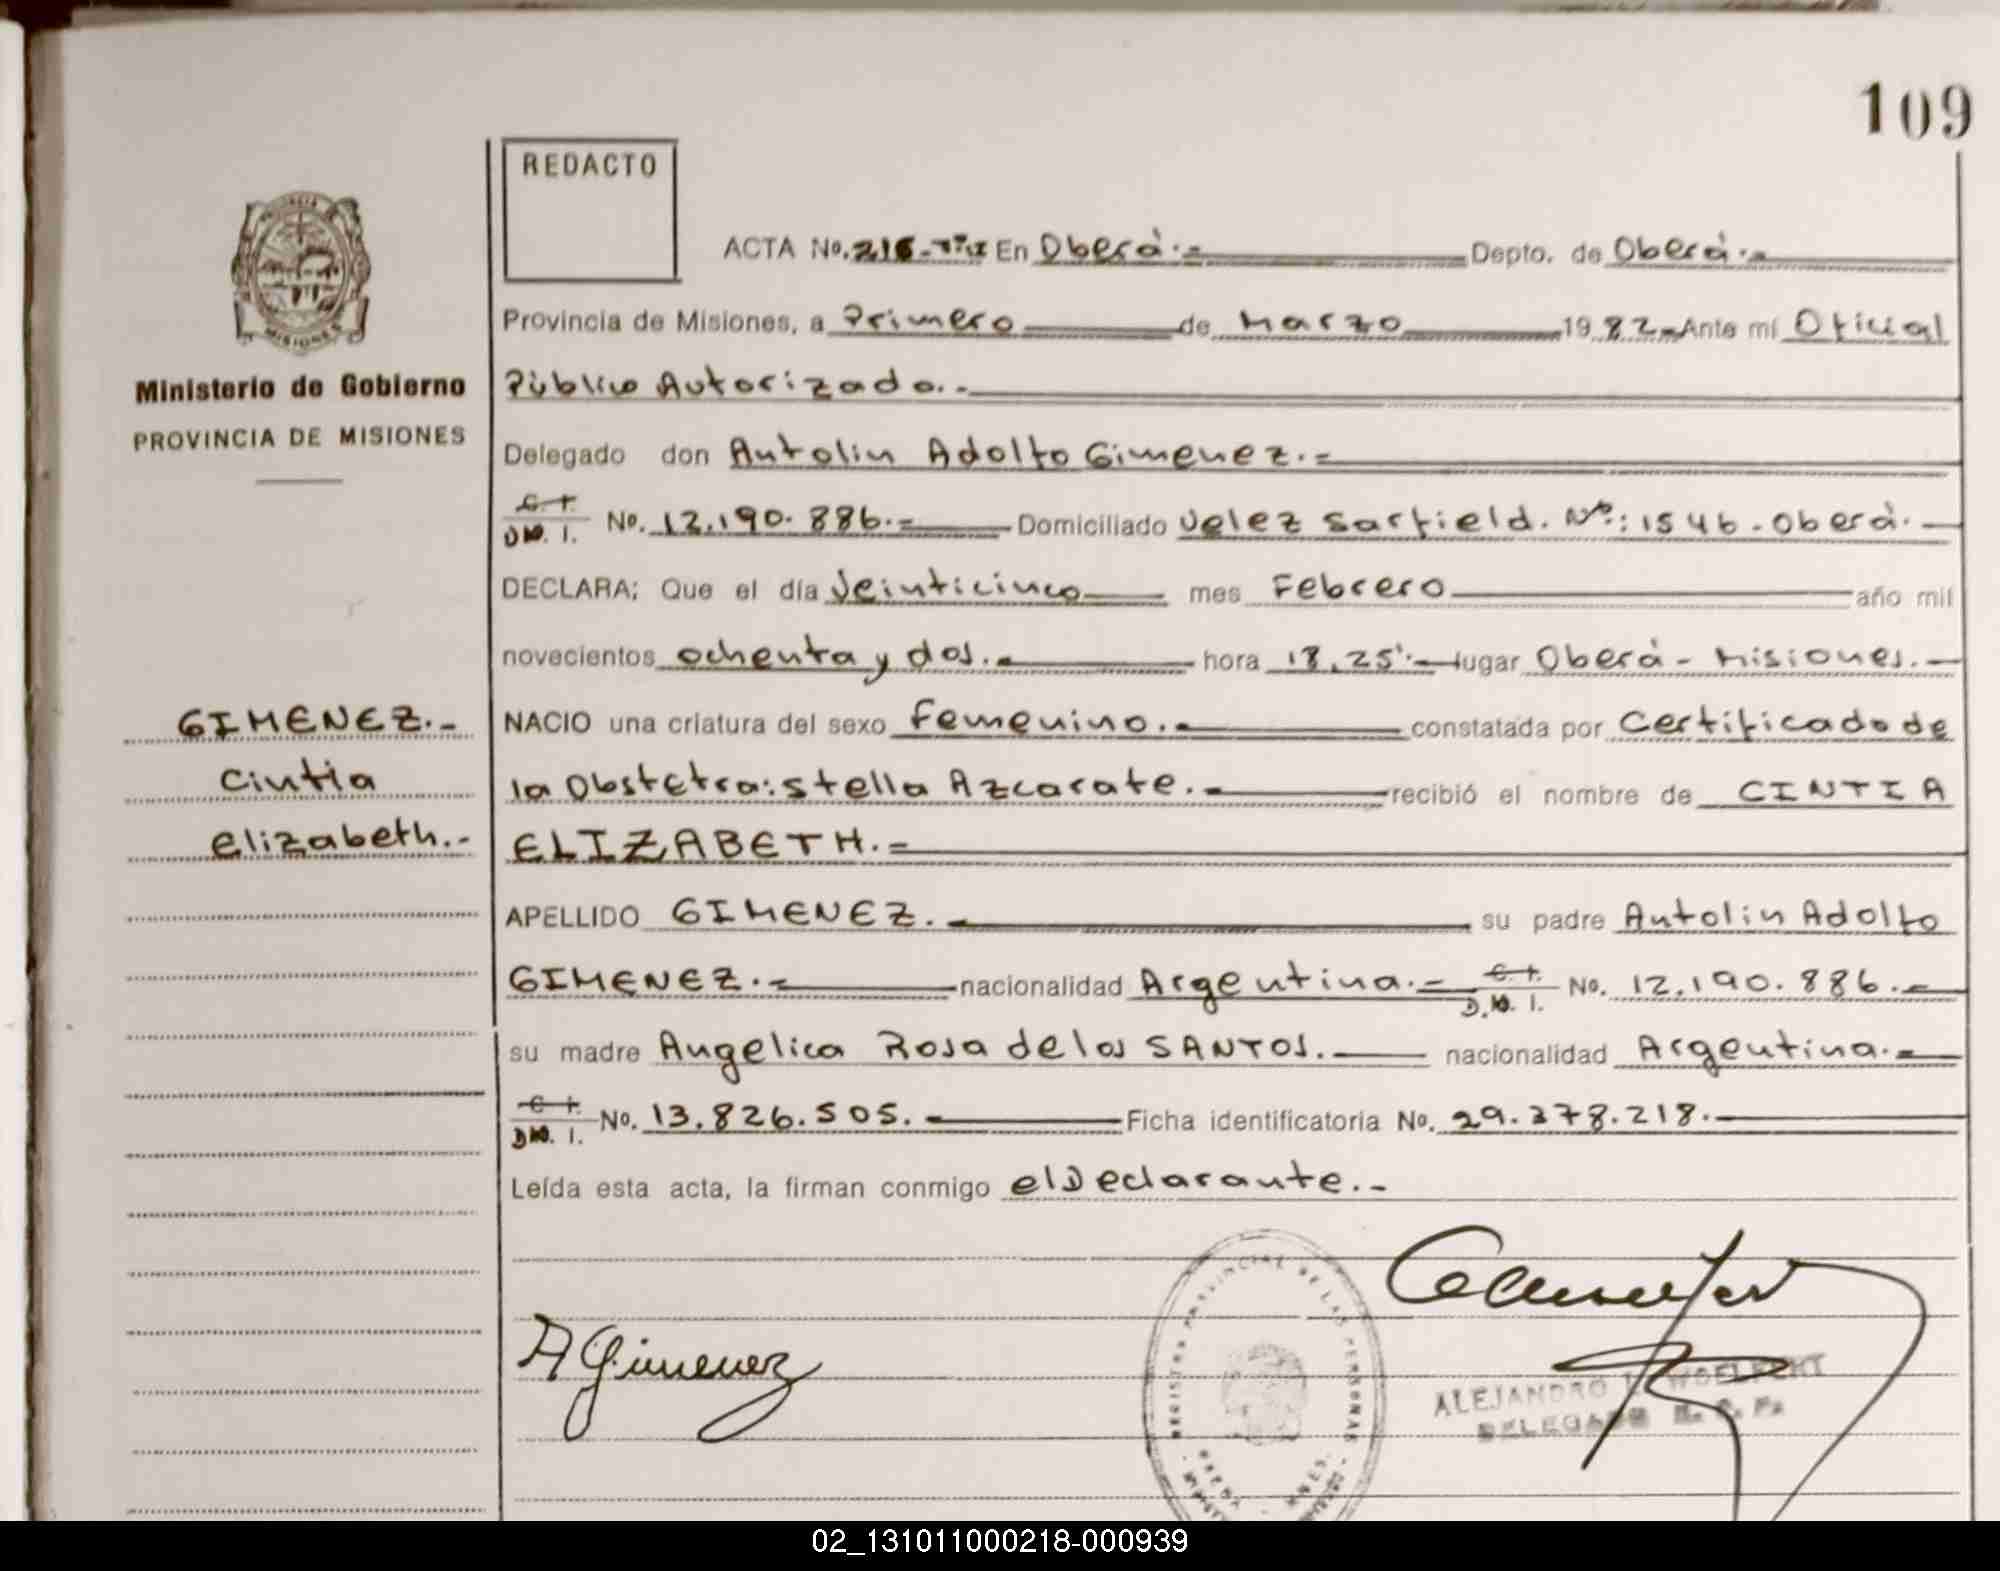 109
REDACTO
PROVINCIA DE
MISIONES
Ministerio de Gobierno
PROVINCIA DE MISIONES
ACTA No. 216- En Oberá.- Depto. de Oberá.-
Provincia de Misiones, a Primero de Marzo 1982- Ante mí Oficial
Público Autorizado.-
Delegado don Antolin Adolfo Gimenez.-
C. I.
D. N. I. No. 12.190.886.- Domiciliado Velez Sarfield. Nº: 1546-Oberá.-
DECLARA; Que el día Veinticinco mes Febrero año mil
novecientos ochenta y dos.- hora 18,25'.- lugar Oberá - Misiones.-
GIMENEZ.-
Cintia
elizabeth.-
NACIO una criatura del sexo Femenino.- constatada por Certificado de
la Obstetra: Stella Azcarate.- recibió el nombre de CINTIA
ELIZABETH.-
APELLIDO GIMENEZ.- su padre Antolin Adolfo
GIMENEZ.- nacionalidad Argentina.- C. I. D. N. I. No. 12.190.886.-
su madre Angelica Rosa de los SANTOS.- nacionalidad Argentina.-
C. I.
D. N. I. No. 13.826.505.- Ficha identificatoria No. 29.378.218.-
Leída esta acta, la firman conmigo el Declarante.-
A Gimenez
REGISTRO PROVINCIAL DE LAS PERSONAS
ALEJANDRO WOELFERT
DELEGADO R. C. P.
02_131011000218-000939